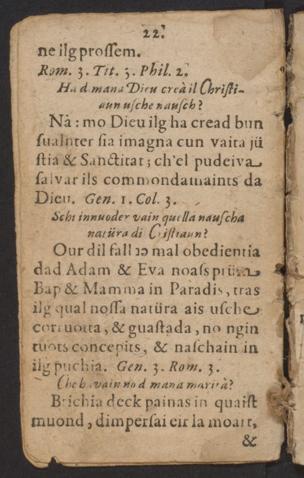 22.
ne ilg prossem.
Rom. 3. Tit. 3. Phil. 2.
Ha d mana Dieu creà il Christi-
aun usche nausch?
Nà: mo Dieu ilg ha cread bun
sualnter sia imagna cun vaira jü
stia & Sanctitat; ch'el pudeiva
salvar ils commondamaints da
Dieu. Gen. 1. Col. 3.
innuoder vain quella nauscha
natüra di Cristiaun?
Our dil fall mal obedientia
dad Adam & Eva noass prüm
Bap & Mamma in Paradis, tras
ilg qual nossa natüra ais usche
corruotta, & guastada, no ngin
tuots concepits, & naschain in
ilg puchia. Gen. 3. Rom. 3.
vain no d mana
Brichia deck painas in quaist
muond, dimpersai eir la moart,
&